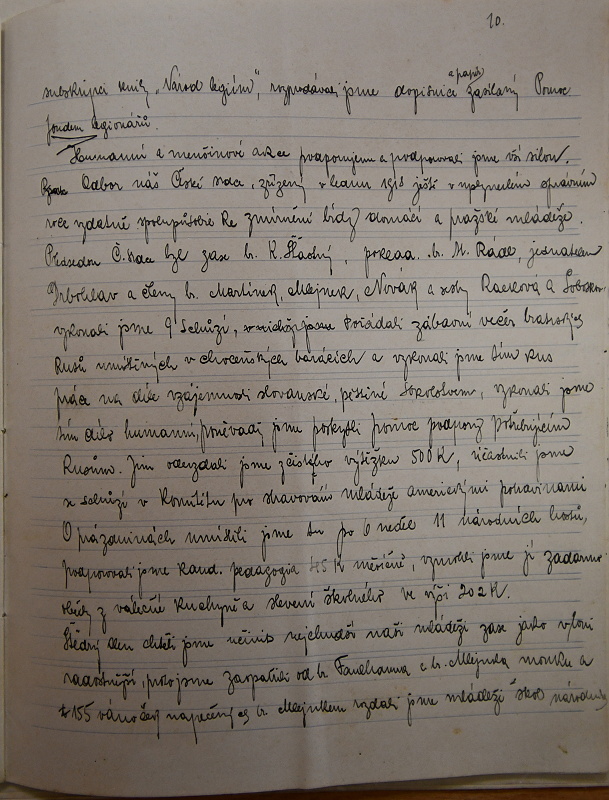 10.
subskripci knihy „Národ legiím“, rozprodávali jsme dopisnice a papír zasílaný Pomoc
fondem legionářů.
Humanní a menšinové akce podporujeme a podporovali jsme vší silou.
Odbor náš České srdce, zřízený v lednu 1918 ještě v správním
roce vydatně spolupůsobil ke zmírnění bídy domácí a pražské mládeže.
Předsedou Č. srdce byl zase br. K. Šťastný, poklad. br. M. Rádl, jednatelem
Drbohlav a členy br. Martínek, Mlejnek, Novák a sestry Racková a
vykonali jsme 9 schůzí, jsme Pořádali zábavní večer bratrských
Rusů umístěných v choceňských barácích a vykonali jsme tím kus
práce na díle vzájemnosti slovanské, pěstěné Sokolstvem, vykonali jsme
tím dílo humanní, poněvadž jsme poskytli pomoc podpory potřebujícím
Rusům. Jim odevzdali jsme z čistého výtěžku 500 K, účastnili jsme
se schůzí v Komitétu pro stravování mládeže americkými potravinami
O prázdninách umístili jsme tu po 6 neděl 11 národních hostů,
podporovali jsme kand. pedagogia 45 K měsíčně, vymohli jsme jí zadarmo
obědy z válečné kuchyně a slevení školného ve výši 202 K.
Štědrý den chtěli jsme učinit nejchudší naší mládeži zase jako vloni
radostnější, proto jsme zaopatřili od br. a br. Mlejnka mouku a
155 vánoček napečených br. Mlejnkem rozdali jsme mládeži škol národních